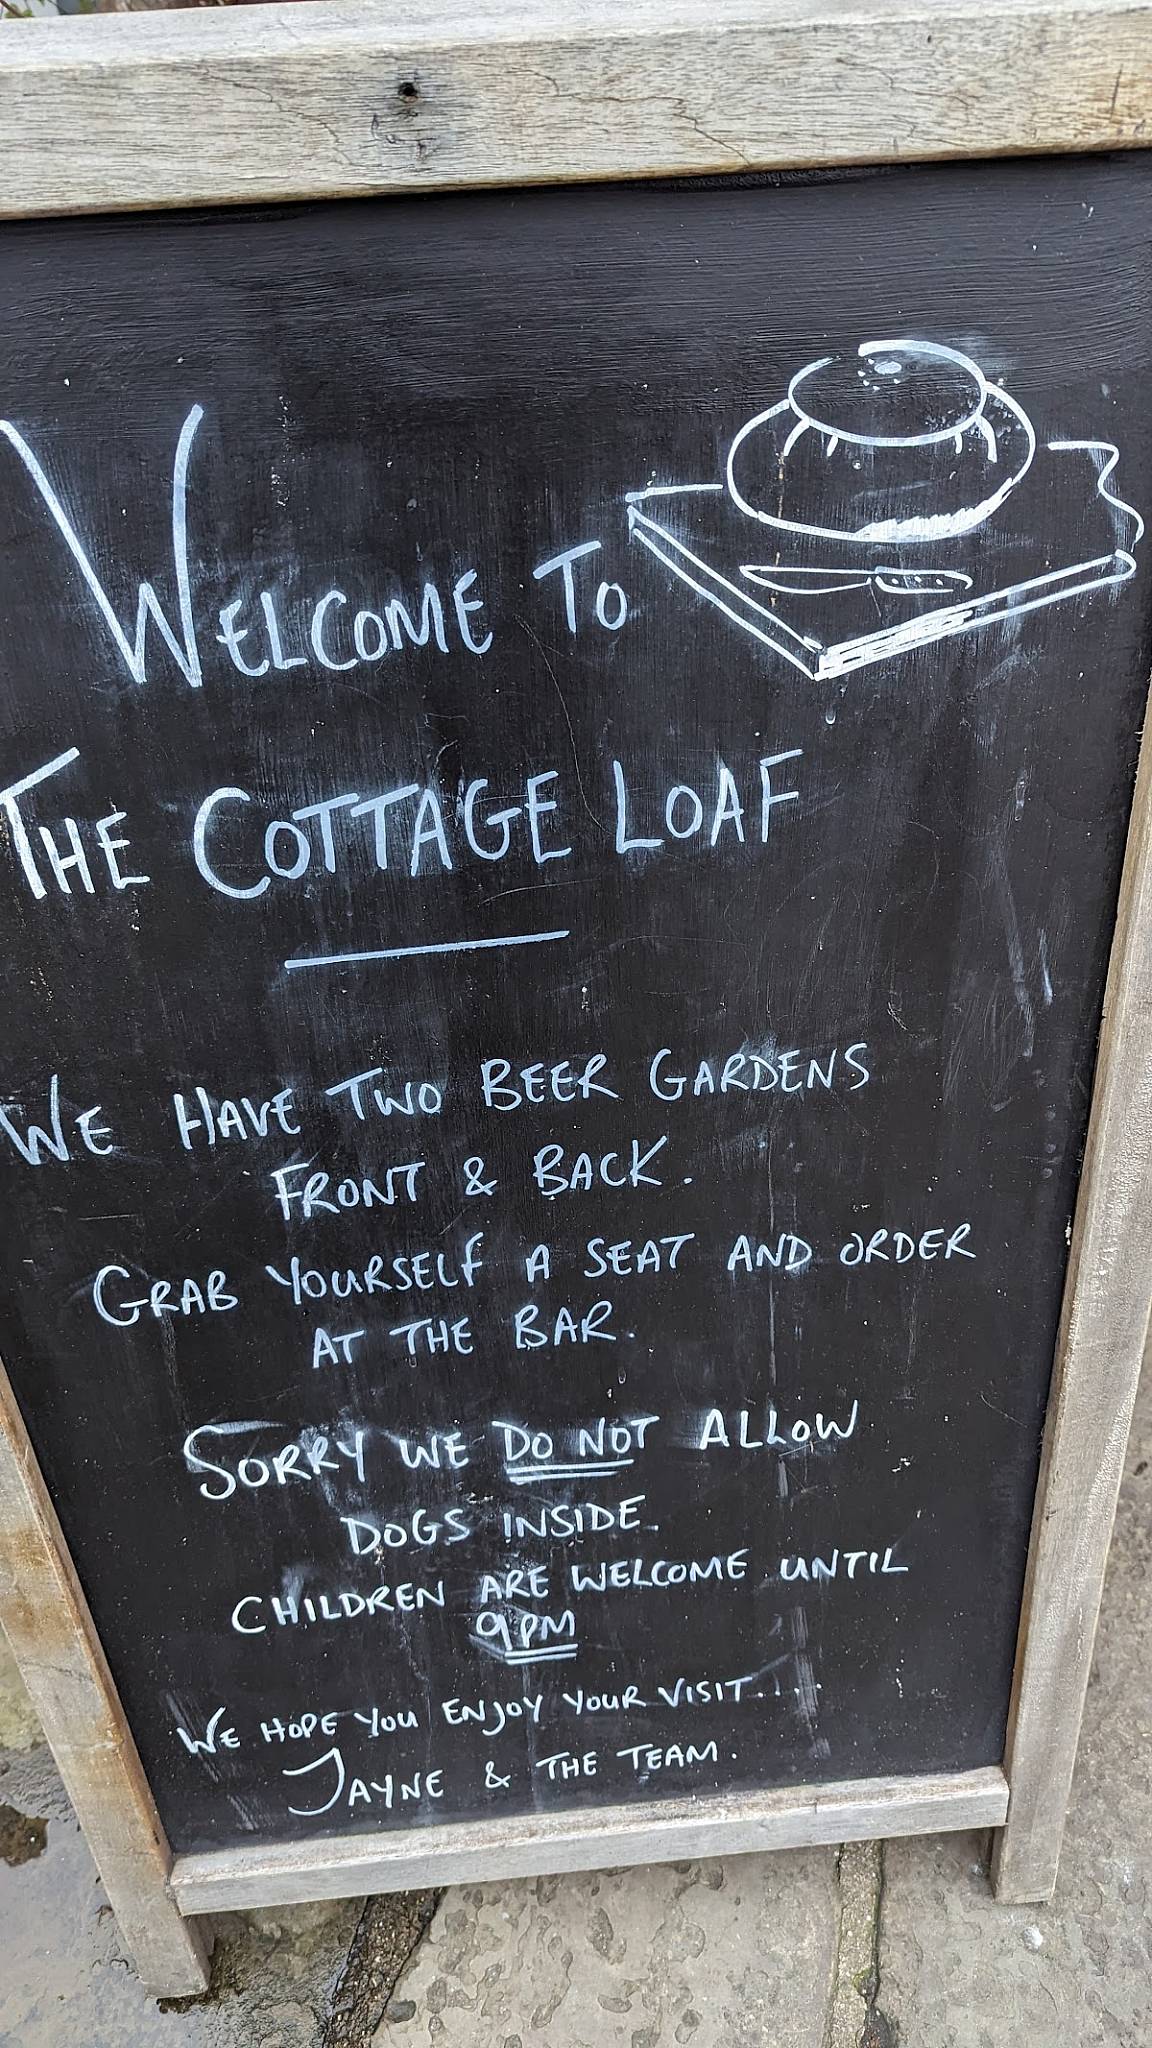 WELCOME TO
THE COTTAGE LOAF
WE HAVE TWO BEER GARDENS
FRONT & BACK.
GRAB YOURSELF A SEAT AND ORDER
AT THE BAR.
SORRY WE DO NOT ALLOW
DOGS INSIDE.
CHILDREN ARE WELCOME UNTIL
9PM
WE HOPE YOU ENJOY YOUR VISIT....
JAYNE & THE TEAM.